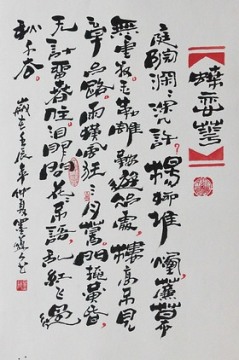 蝶恋花
庭院深深深几许？楊柳堆煙，簾幕
無重数。玉勒雕鞍遊冶處，樓高不見
章台路。雨横风狂三月暮，門掩黄昏，
无计留春住。泪眼問花花不語，乱红飞過
秋千去。
歲在壬辰年仲夏